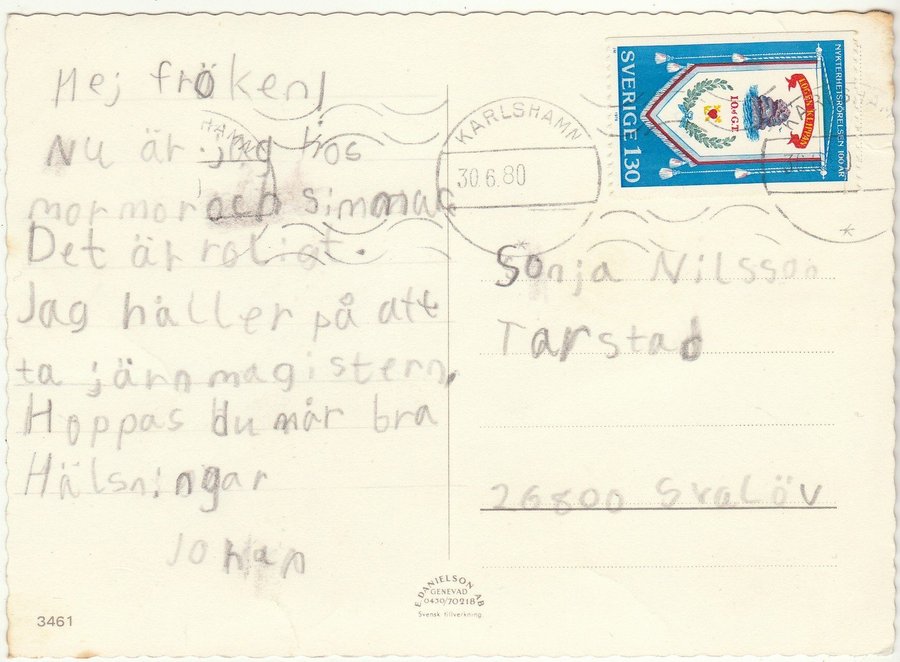 Hej fröken!
Nu är jag hos
mormor och simmar
Det är roligt.
Jag håller på att
ta järnmagistern.
Hoppas du mår bra
Hälsningar
Johan
3461
E. DANIELSON AB
GENEVAD
0430/70218
Svensk tillverkning
KARLSHAMN
30.6.80
SVERIGE 130
NYKTERHETSRÖRELSEN 100 ÅR
LOGEN KLIPPAN
I.O.G.T.
Sonja Nilsson
Tarstad
26800 Svalöv